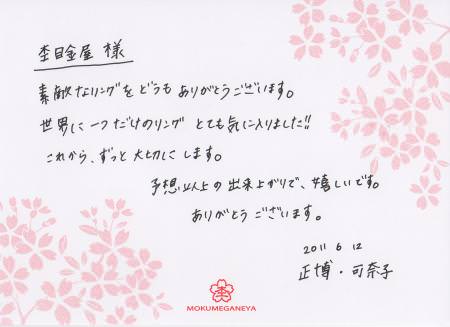 杢目金屋 様
素敵なリングをどうもありがとうございます。
世界に一つだけのリング とても気に入りました!!
これから、ずっと大切にします。
予想以上の出来上がりで、嬉しいです。
ありがとうございます。
2011 6 12
正博・可奈子
MOKUMEGANEYA